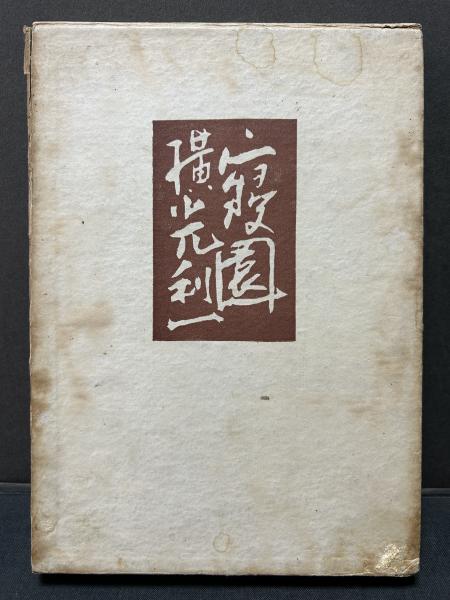 寝園
横光利一